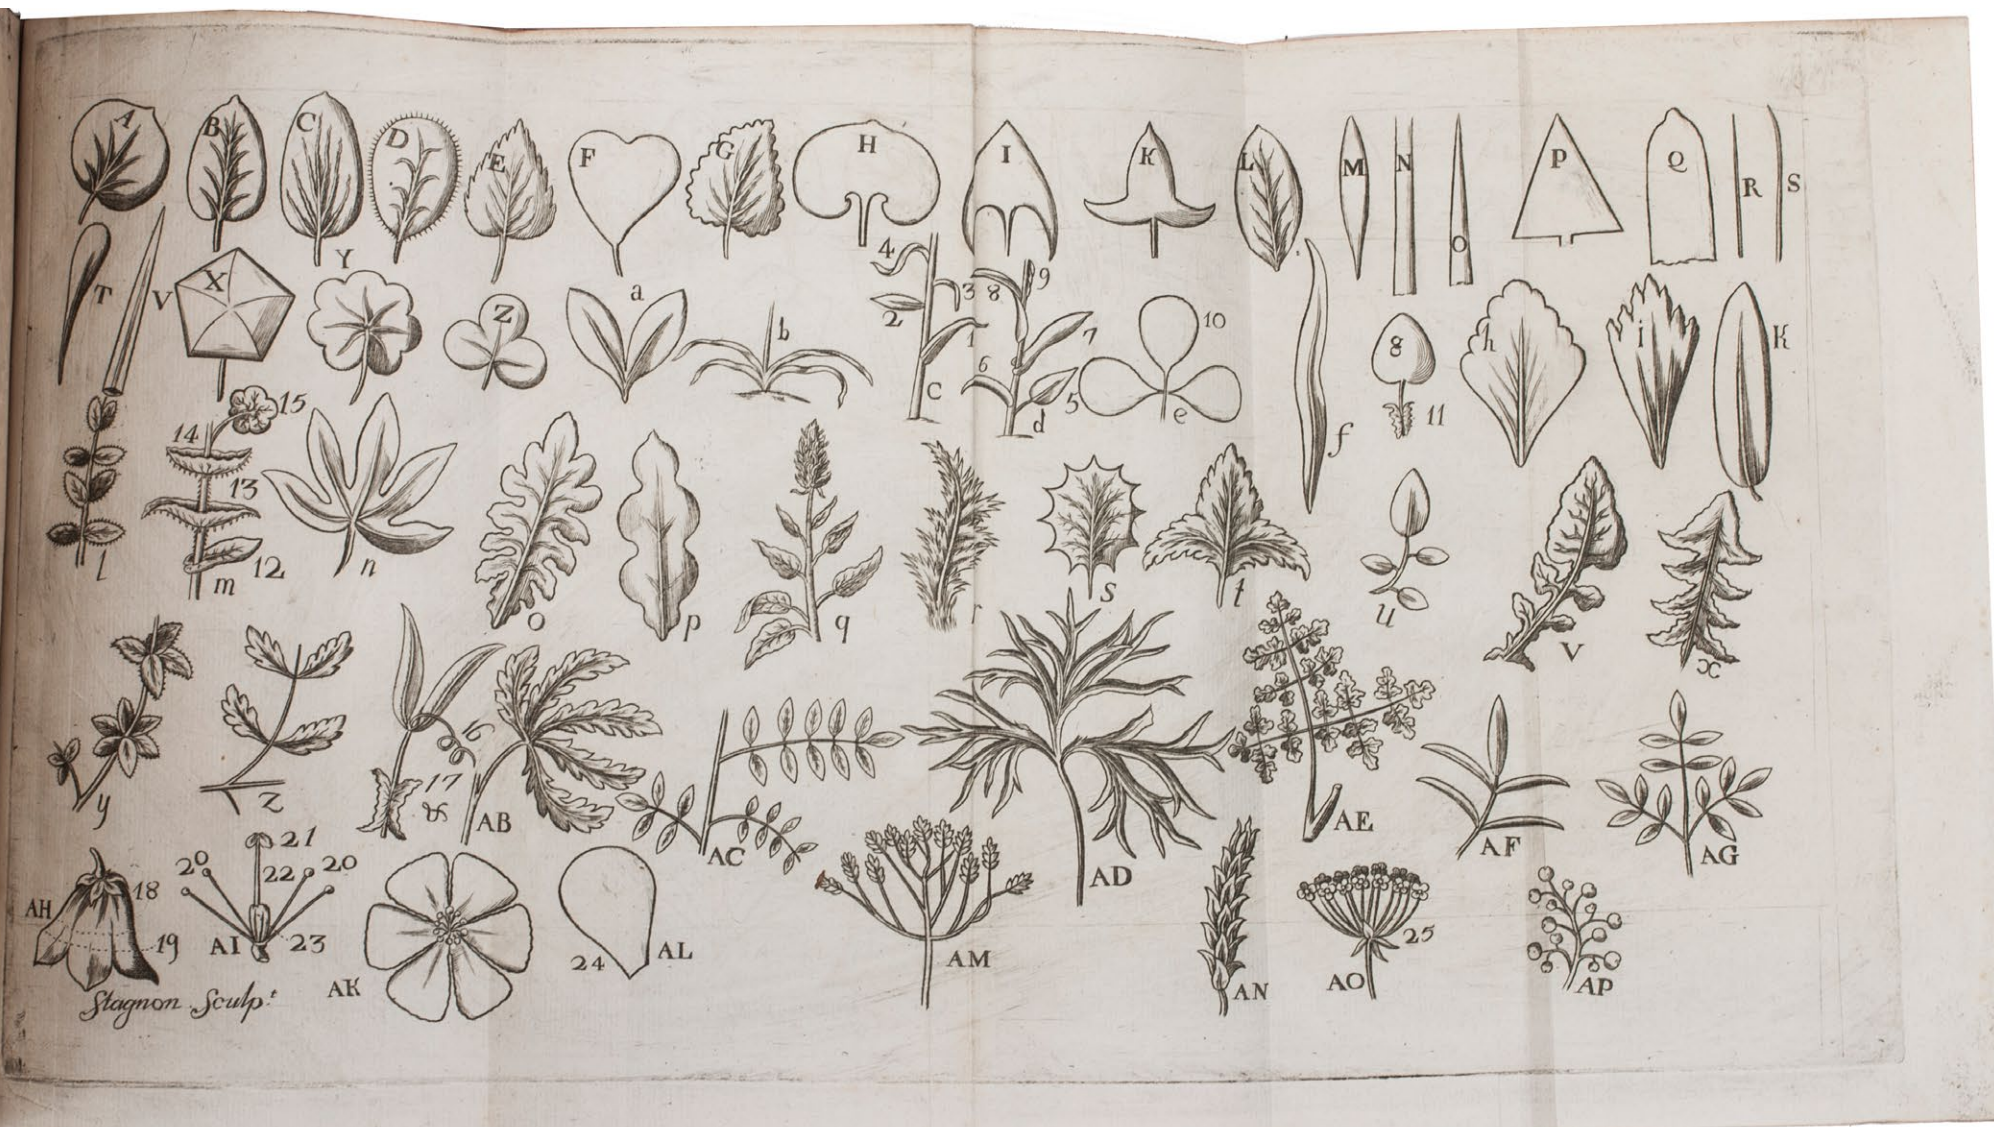 A B C D E F G H I K L M N O P Q R S
T V X Y Z a b 4 2 3 1 c 8 9 7 6 5 d 10 e f 8 11 h i K
l 15 14 13 12 m n o p q r s t u V x
y z 16 17 & AB AC AD AE AF AG
AH 18 19 20 21 22 20 AI 23 AK 24 AL AM AN AO 25 AP
Stagnon Sculp.t